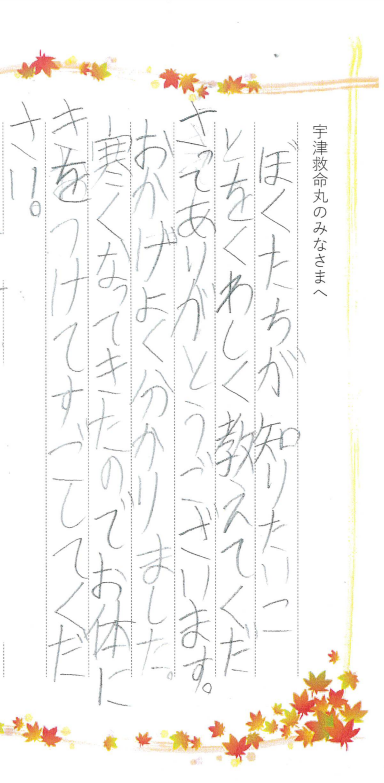 宇津救命丸のみなさまへ
ぼくたちが知りたいこ
とをくわしく教えてくだ
さってありがとうございます。
おかげよく分かりました。
寒くなってきたのでお体に
きをつけてすごしてくだ
さい。